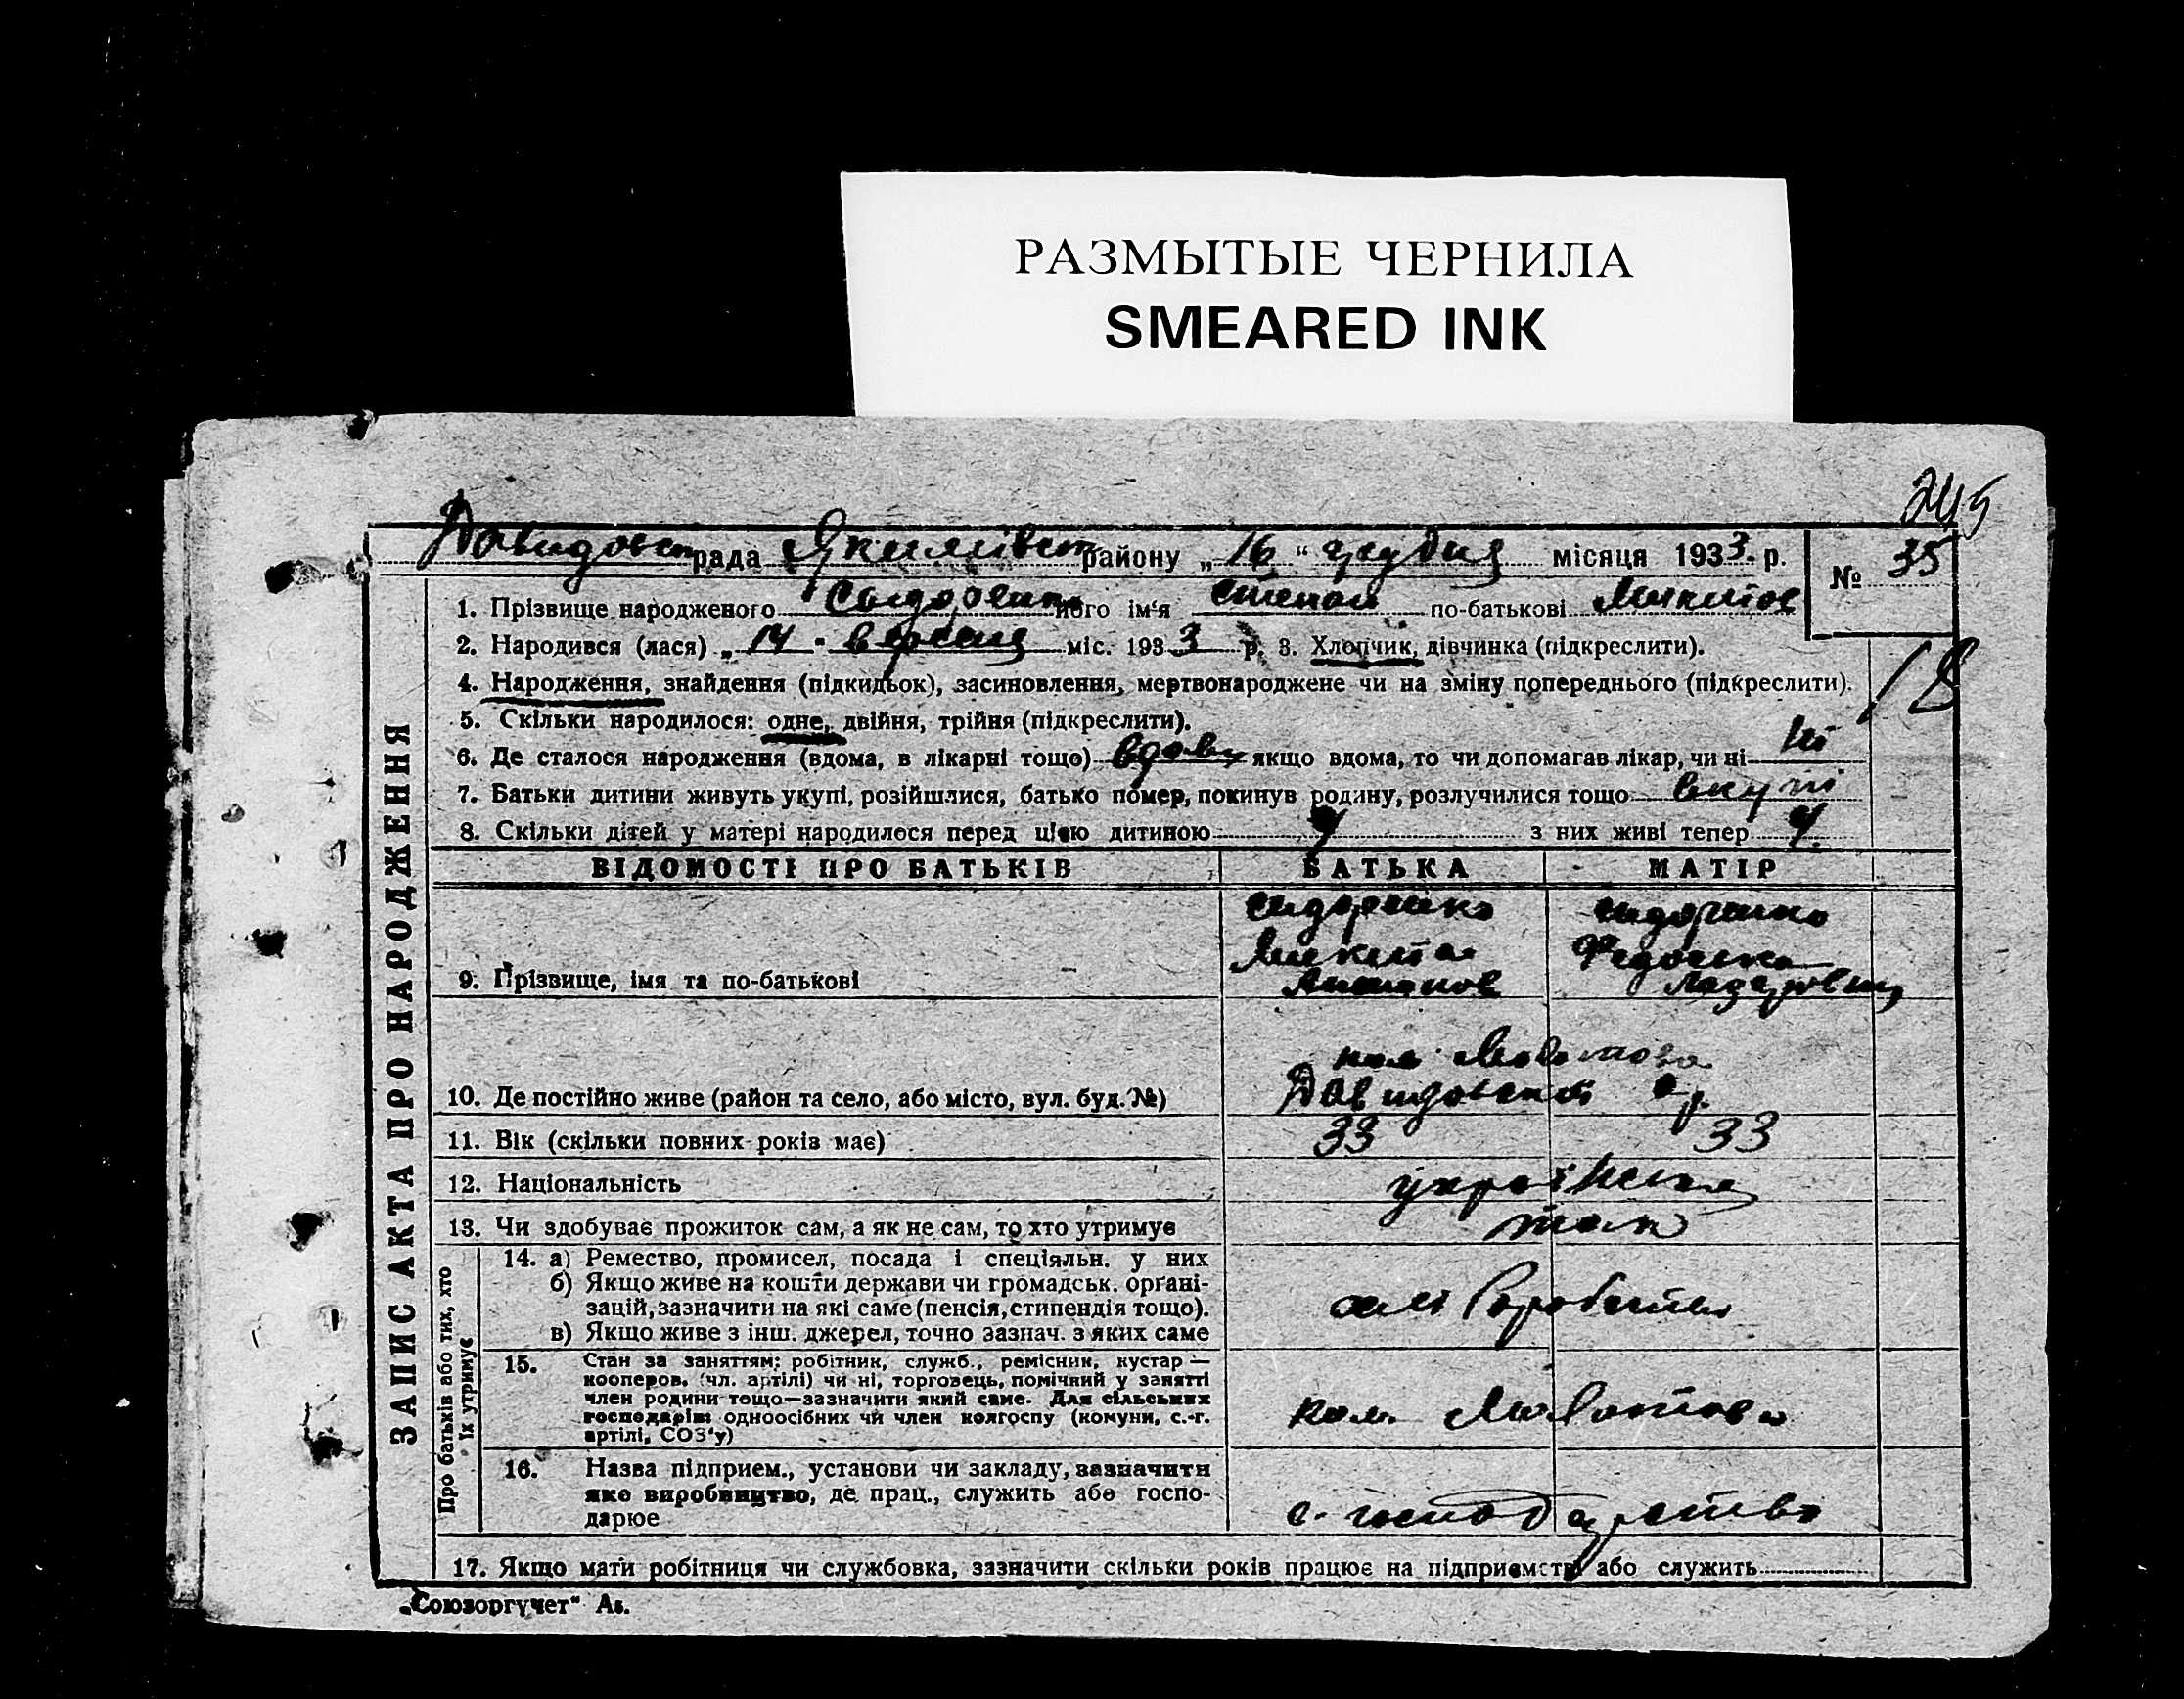 РАЗМЫТЫЕ ЧЕРНИЛА
SMEARED INK
245
Давидовск рада Якимівськ району „16“ грудня місяця 1933 р. № 35
1. Прізвище народженого Сыдоренко його ім'я Степан по-батькові Микитов
2. Народився (лася) „14 - вересня міс. 1933 р. 3. Хлопчик, дівчинка (підкреслити).
18
4. Народження, знайдення (підкидьок), засиновлення, мертвонароджене чи на зміну попереднього (підкреслити).
5. Скільки народилося: одне, двійня, трійня (підкреслити).
6. Де сталося народження (вдома, в лікарні тощо) вдома якщо вдома, то чи допомагав лікар, чи ні ні
7. Батьки дитини живуть укупі, розійшлися, батько помер, покинув родину, розлучилися тощо вкупі
8. Скільки дітей у матері народилося перед цією дитиною 4 з них живі тепер 4.
ВІДОМОСТІ ПРО БАТЬКІВ БАТЬКА МАТІР
Сидоренко Сидоренко
Микита Федоська
9. Прізвище, імя та по-батькові Антонов Лазаровна
кол.
10. Де постійно живе (район та село, або місто, вул. буд. №) Давидовской с р.
11. Вік (скільки повних років має) 33 33
12. Національність українська
13. Чи здобуває прожиток сам, а як не сам, то хто утримує так
14. а) Ремество, промисел, посада і спеціяльн. у них
б) Якщо живе на кошти держави чи громадськ. орґані-
зацій, зазначити на які саме (пенсія, стипендія тощо).
в) Якщо живе з інш. джерел, точно зазнач. з яких саме
15. Стан за заняттям; робітник, служб., ремісник, кустар —
кооперов. (чл. артілі) чи ні, торговець, помічний у занятті
член родини тощо—зазначити який саме. Для сільських
господарів: одноосібних чи член колгоспу (комуни, с.-г.
артілі, СОЗ'у)
кол.
16. Назва підприем., установи чи закладу, зазначити
яке виробництво, де прац., служить або госпо-
дарює
с. господарство
17. Якщо мати робітниця чи службовка, зазначити скільки років працює на підприємстві або служить
„Союзоргучет“ Аз.
ЗАПИС АКТА ПРО НАРОДЖЕННЯ
Про батьків або тих, хто
їх утримує